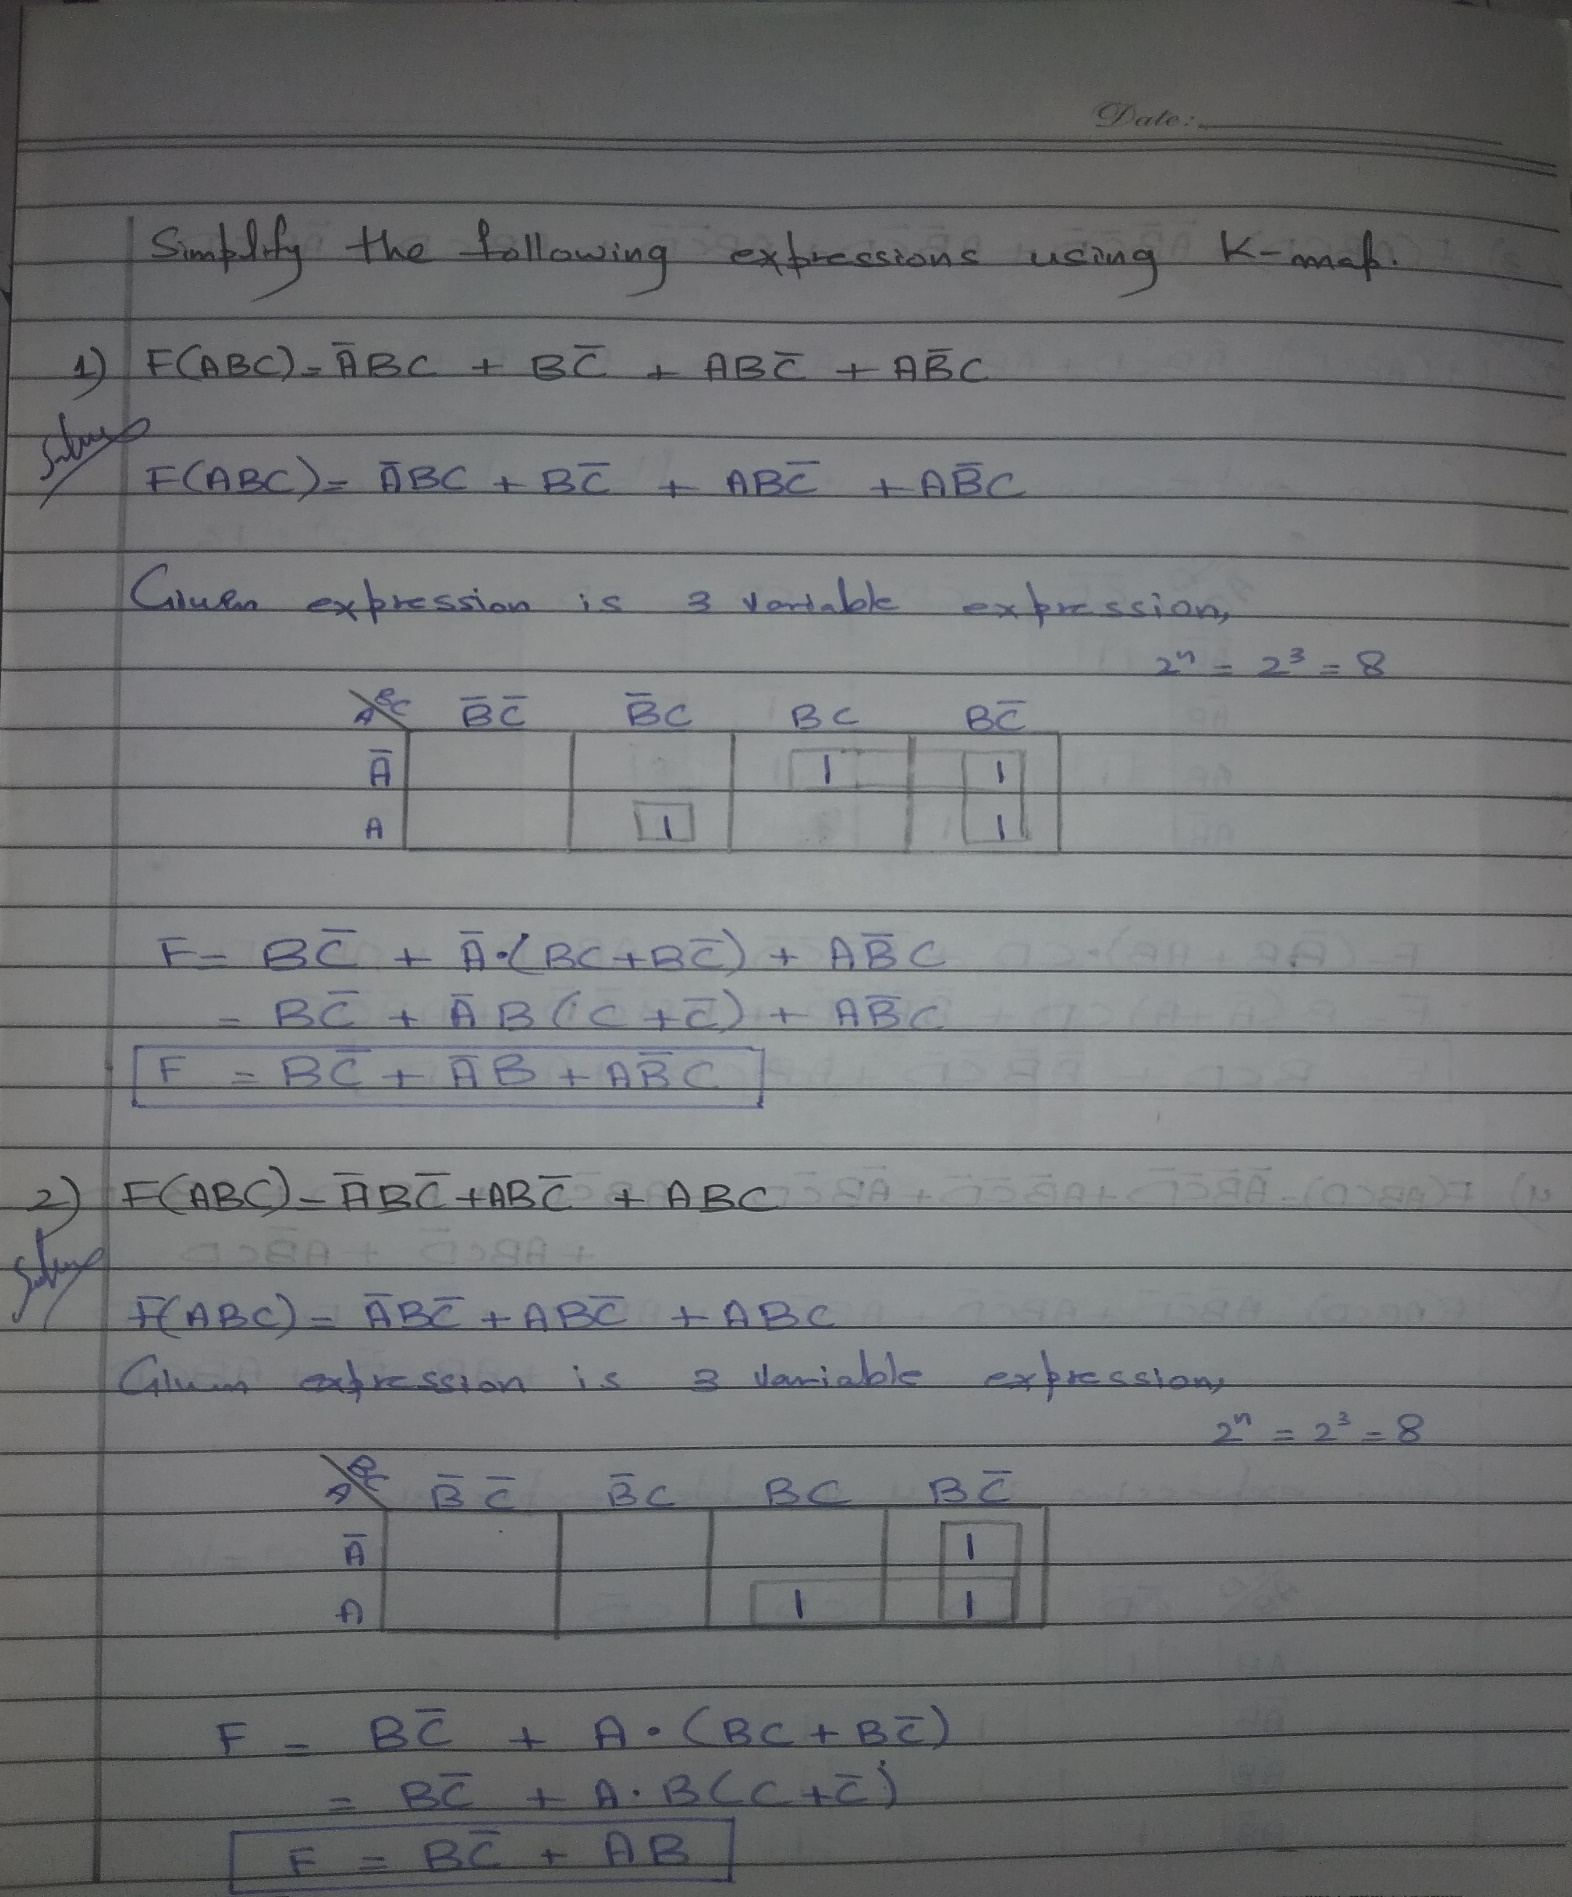 Date:
Simplify the following expressions using K-map.
1) F(ABC) = A̅BC + BC̅ + ABC̅ + AB̅C
F(ABC) = A̅BC + BC̅ + ABC̅ + AB̅C
Given expression is 3 variable expression,
2ⁿ = 2³ = 8
A BC B̅C̅ B̅C BC BC̅
A̅ 1 1
A 1 1
F = BC̅ + A̅·(BC+BC̅) + AB̅C
= BC̅ + A̅B(C+C̅) + AB̅C
F = BC̅ + A̅B + AB̅C
2) F(ABC) = A̅BC̅ + ABC̅ + ABC
F(ABC) = A̅BC̅ + ABC̅ + ABC
Given expression is 3 variable expression,
2ⁿ = 2³ = 8
A BC B̅C̅ B̅C BC BC̅
A̅ 1
A 1 1
F = BC̅ + A·(BC+BC̅)
= BC̅ + A·B(C+C̅)
F = BC̅ + AB